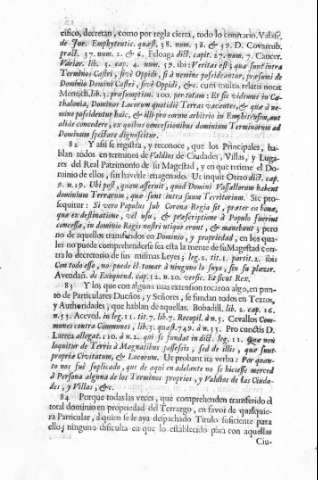 cifico, decretan, como por regla cierta, todo lo contrario. Valasc.
de Jur. Emphyteutic. quæst. 38. num. 38. & 39. D. Covarrub.
pract. 37. num. 2. & 6. Feloaga dict. capit. 27. num. 7. Cancer.
Variar. lib. 3. cap. 4. num. 39. ibi: Veritas est; quæ sunt intra
Terminos Castri, sivè Oppidi, si à nemine possideantur, præsumi de
Dominio Domini Castri, sivè Oppidi, &c. cum multis relatis notat
Menoch. lib. 3. præsumption. 100. per totam: Et sic videmus in Ca-
thalonia, Dominos Locorum quotidiè Terras vacantes, & quæ à ne-
mine possidentur huic, & illi pro eorum arbitrio in Emphiteusim, aut
aliàs concedere, ex quibus concessionibus dominium Terminorum ad
Dominum spectare dignoscitur.
82 Y assi se registra, y reconoce, que los Principales, ha-
blan todos en terminos de Valdios de Ciudades, Villas, y Luga-
res del Real Patrimonio de su Magestad, y en que retiene el Do-
minio de ellos, sin haverle enagenado. Ut inquit Otero dict. cap.
8. n. 19. Ubi post, quam asseruit, quod Domini Vassallorum habent
dominium Terrarum, quæ sunt intra suum Territorium. Sic pro-
sequitur: Si verò Populus sub Corona Regia sit, præter eo bona,
quæ ex destinatione, vèl usu, & præscriptione à Populo fuerint
concessa, in dominio Regis nostri utique erunt, & manebunt; pero
no de aquellos transferidos en Dominio, y propriedad, en los qua-
les no puede comprehenderse sea esta la mente de su Magestad con-
tra lo decretorio de sus mismas Leyes; leg. 2. tit. 1. partit. 2. ibi:
Con todo esso, no puede èl tomar à ninguno lo suyo, sin su placer.
Avendañ. de Exequend. cap. 12. n. 20. versic. Ex sicut Rex.
83 Y los que con alguna mas extension tocaron algo, en pun-
to de Particulares Dueños, y Señores, se fundan todos en Textos,
y Authoridades, que hablan de aquellas. Bobadill. lib. 2. cap. 16.
n. 53. Aceved. in leg. 11. tit. 7. lib. 7. Recopil. à n. 5. Cevallos Com-
munes contra Communes, lib. 3. quæst. 749. à n. 33. Pro cunctis D.
Larrea allegat. 110. à n. 2. qui se fundat in dict. leg. 11. Quæ non
loquitur de Terris à Magnatibus possessis, sed de illis, quæ sunt
propria Civitatum, & Locorum. Ut probant ita verba: Por quan-
to nos fuè suplicado, que de aqui en adelante no se hiciesse merced
à Persona alguna de los Terminos proprios, y Valdios de las Ciuda-
des, y Villas, &c.
84 Porque todas las veces, que comprehenden transferido el
total dominio en propriedad del Terrazgo, en favor de qualquie-
ra Particular, à quien se le aya despachado Titulo suficiente para
ello; ninguno dificulta en que lo establecido para con aquellas
Ciu-